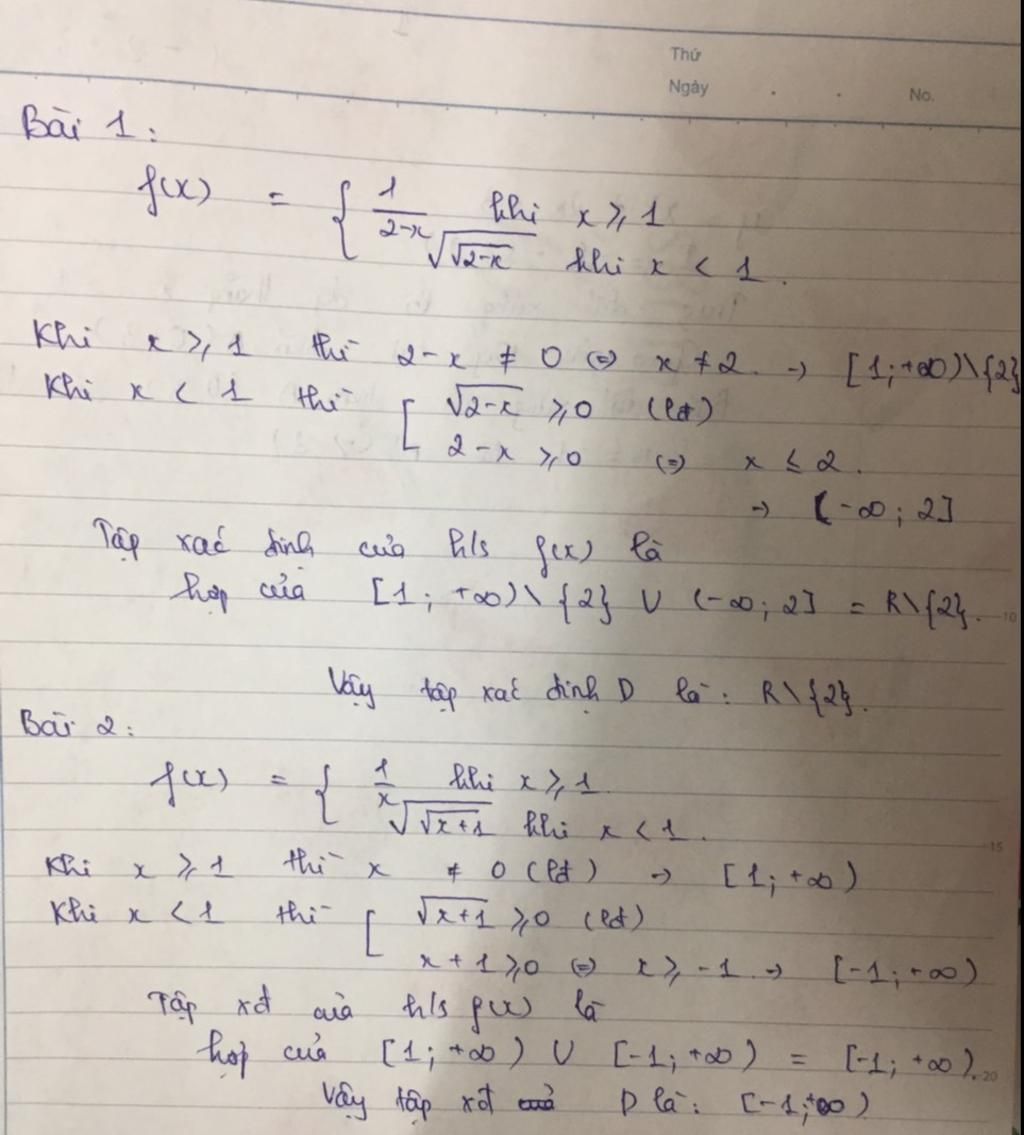 Thứ
Ngày . . No.
Bài 1:
f(x) = { 1/(2-x) khi x ≥ 1
√(√(2-x)) khi x < 1.
Khi x ≥ 1 thì 2-x ≠ 0 (=) x ≠ 2. → [1; +∞)\{2}
Khi x < 1 thì [ √(2-x) ≥ 0 (lđ)
2-x ≥ 0 (=) x ≤ 2.
→ (-∞; 2]
Tập xác định của h/s f(x) là
hợp của [1; +∞)\{2} ∪ (-∞; 2] = R\{2}.
10
Vậy tập xác định D là: R\{2}.
Bài 2:
f(x) = { 1/x khi x ≥ 1.
√(√(x+1)) khi x < 1.
15
Khi x ≥ 1 thì x ≠ 0 (lđ) → [1; +∞)
Khi x < 1 thì [ √(x+1) ≥ 0 (lđ)
x+1 ≥ 0 (=) x ≥ -1 → [-1; +∞)
Tập xđ của h/s f(x) là
hợp của [1; +∞) ∪ [-1; +∞) = [-1; +∞).
20
Vậy tập xđ D là: [-1; +∞)